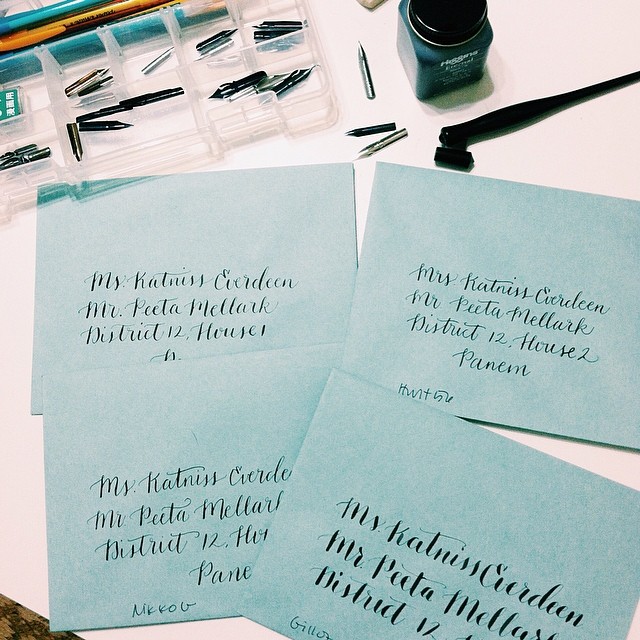 Higgins
Eternal
Ms. Katniss Everdeen
Mr. Peeta Mellark
District 12, House 1
Mrs Katniss Everdeen
Mr Peeta Mellark
District 12, House 2
Panem
Hunt 56
Ms. Katniss Everde
Mr Peeta Mellark
District 12, Hou
Pane
Nikko G
Ms Katniss Everdeen
Mr Peeta Mellark
District 12, Hou
Gillot